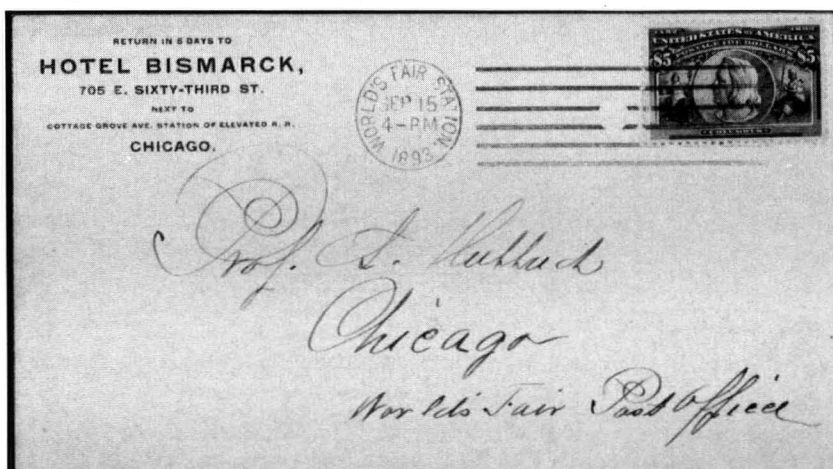 RETURN IN 5 DAYS TO
HOTEL BISMARCK,
705 E. SIXTY-THIRD ST.
NEXT TO
COTTAGE GROVE AVE. STATION OF ELEVATED R. R.
CHICAGO.
WORLD'S FAIR STATION.
SEP 15
4-PM
1893
UNITED STATES OF AMERICA
POSTAGE FIVE DOLLARS
$5 $5
COLUMBUS
Prof. A.
Chicago
World's Fair Post Office